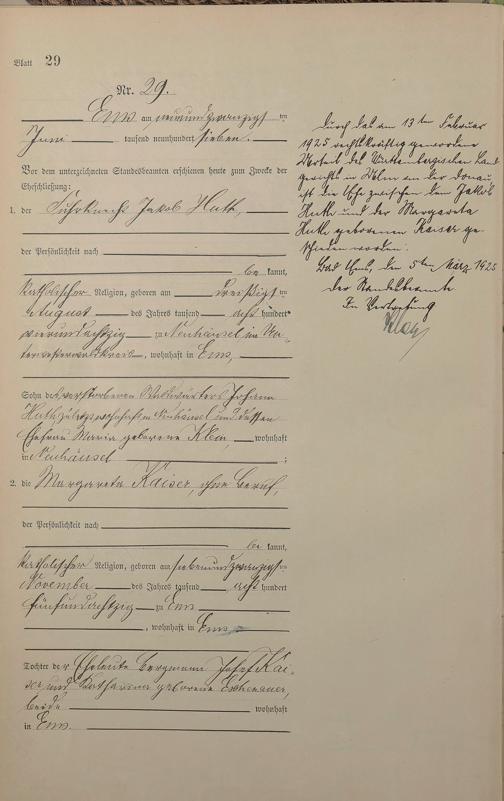 Blatt 29
Nr. 29.
Ems am neunundzwanzigsten
Juni tausend neunhundert sieben.
Vor dem unterzeichneten Standesbeamten erschienen heute zum Zwecke der
Eheschließung:
1. der Fuhrknecht Jakob Huth,
der Persönlichkeit nach
be kannt,
katholischer Religion, geboren am dreißigsten
August des Jahres tausend acht hundert
vierundachtzig zu Neuhäusel im Un-
terwesterwaldkreis, wohnhaft in Ems,
Sohn des verstorbenen Johann
Huth, zuletzt wohnhaft in Neuhäusel und dessen
Ehefrau Maria geborene Klein, wohnhaft
in Neuhäusel ;
2. die Margareta Kaiser, ohne Beruf,
der Persönlichkeit nach
be kannt,
katholischer Religion, geboren am siebenundzwanzigsten
November des Jahres tausend acht hundert
fünfundachtzig zu Ems
, wohnhaft in Ems
Tochter der Eheleute Bergmann Josef Kai-
ser und Katharina geborene
beide wohnhaft
in Ems.
Durch das am 13ten Februar
1925 rechtskräftig gewordene
Urteil des Württembergischen Land
gerichts in Ulm an der Donau
ist die Ehe zwischen dem Jakob
Huth und der Margareta
Huth geborenen Kaiser ge-
schieden worden.
Bad Ems, den 5ten März 1925
der Standesbeamte
In Vertretung